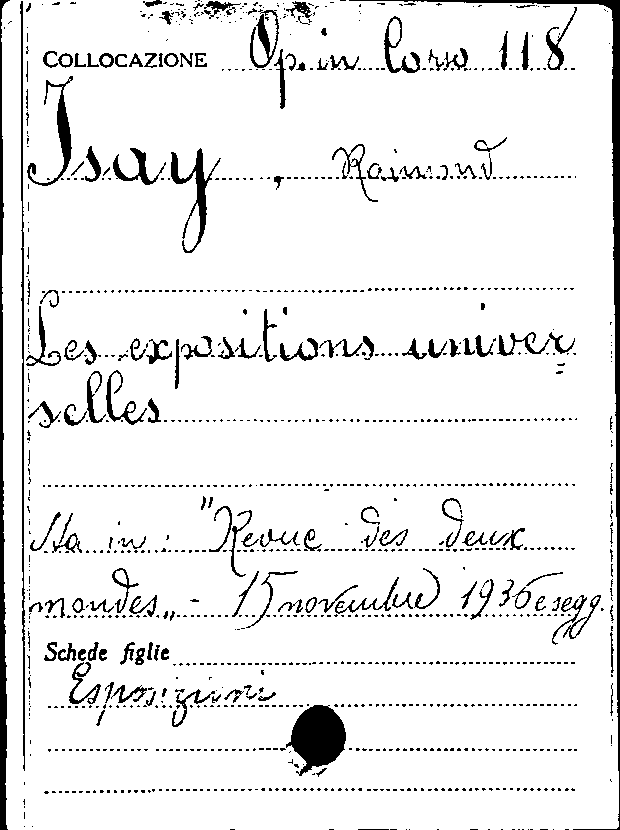 COLLOCAZIONE Op. in Corso 118
Isay, Raimond
Les expositions univer=
selles
Sta in: "Revue des deux
mondes„ - 15 novembre 1936 e segg.
Schede figlie
Esposizioni